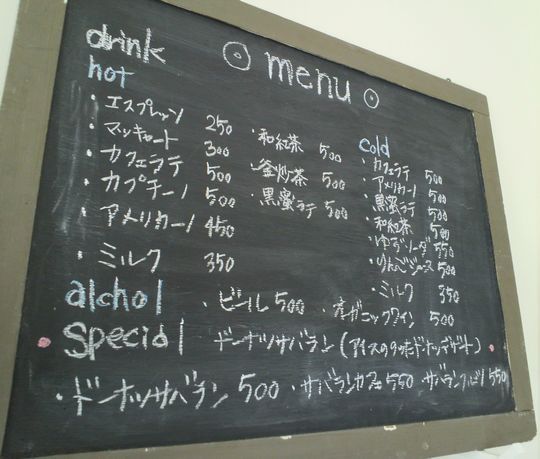 drink
menu
hot
・エスプレッソ 250
・マッキャート 300
・カフェラテ 500
・カプチーノ 500
・アメリカーノ 450
・ミルク 350
・和紅茶 500
・釜炒茶 500
・黒蜜ラテ 500
cold
・カフェラテ 500
・アメリカーノ 500
・黒蜜ラテ 500
・和紅茶 500
・ゆずソーダ 550
・りんごジュース 500
・ミルク 350
alchol
・ビール 500 ・オーガニックワイン 500
special ドーナツサバラン(アイスののったドーナツデザート)
・ドーナツサバラン 500 ・サバランカフェ 550 ・サバラン 550